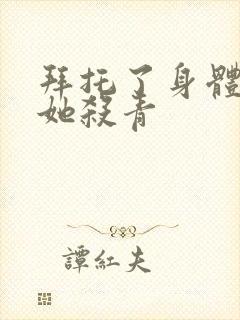 拜托了身體
她殺青
譚紅夫